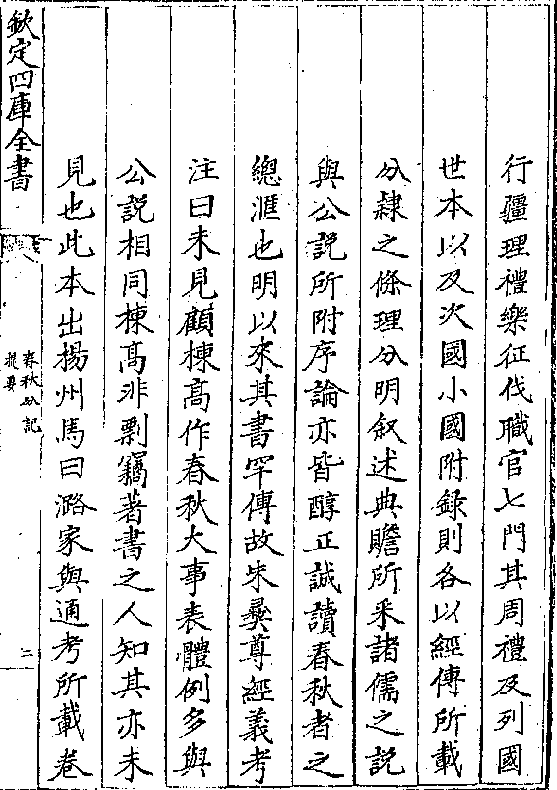 行疆理禮樂征伐職官七門其周禮及列國
世本以及次國小國附録則各以經傳所載
分隸之條理分明叙述典贍所采諸儒之説
與公説所附序論亦皆醇正誠讀春秋者之
總滙也明以來其書罕傳故朱彝尊經義考
注曰未見顧棟高作春秋大事表體例多與
公説相同棟高非剽竊著書之人知其亦未
見也此本出揚州馬曰潞家與通考所載卷
欽定四庫全書
春秋分記
提要
二